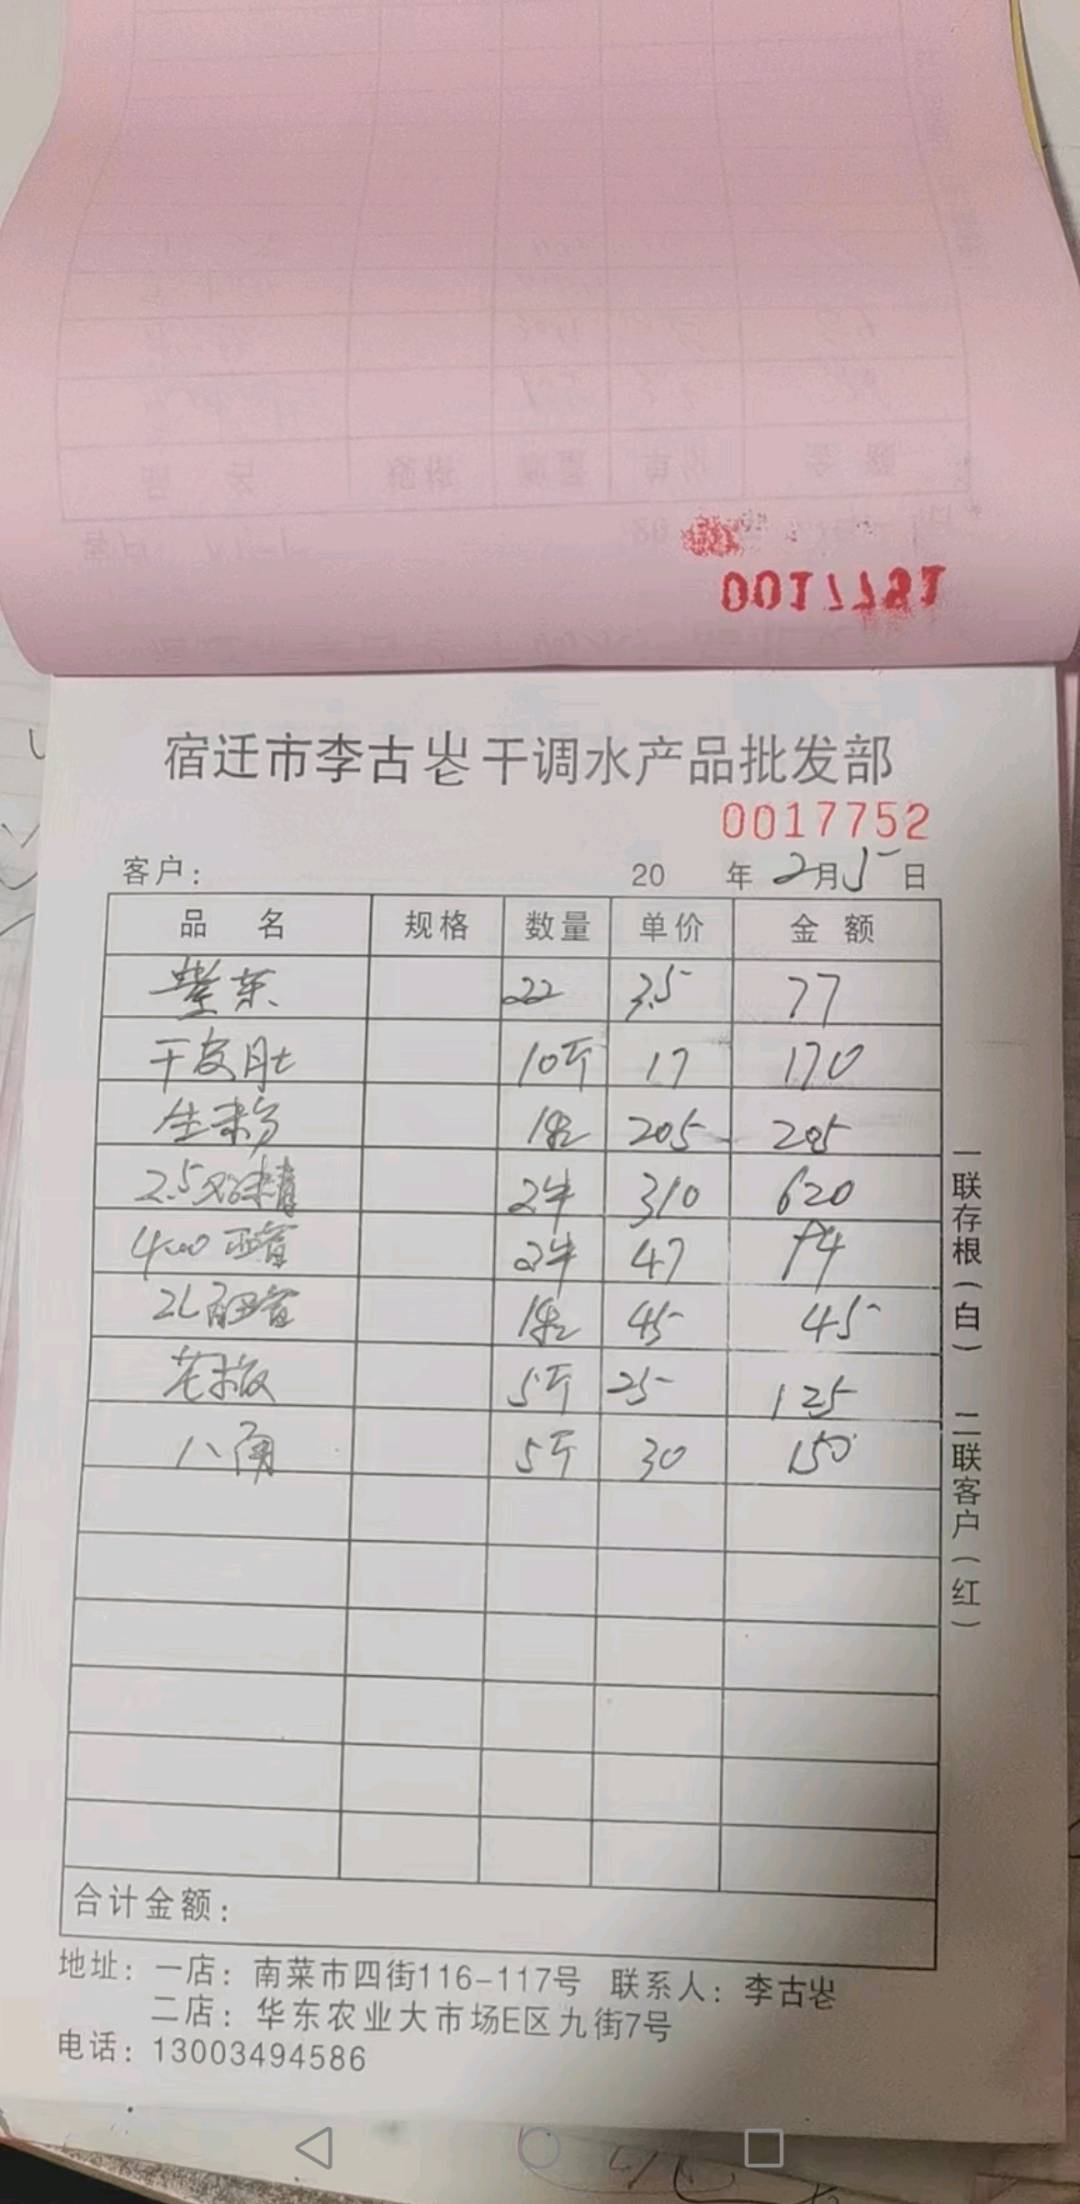 0017781
宿迁市李古岜干调水产品批发部
0017752
客户： 20 年 2月5日
品名 规格 数量 单价 金额
紫菜 22 3.5 77
干皮肚 10斤 17 170
生粉 1袋 205 205
2.5鸡精 2件 310 620
400 2件 47 94
2L 1袋 45 45
花椒 5斤 25 125
八角 5斤 30 150
合计金额：
地址：一店：南菜市四街116-117号 联系人：李古岜
二店：华东农业大市场E区九街7号
电话：13003494586
一联存根（白） 二联客户（红）